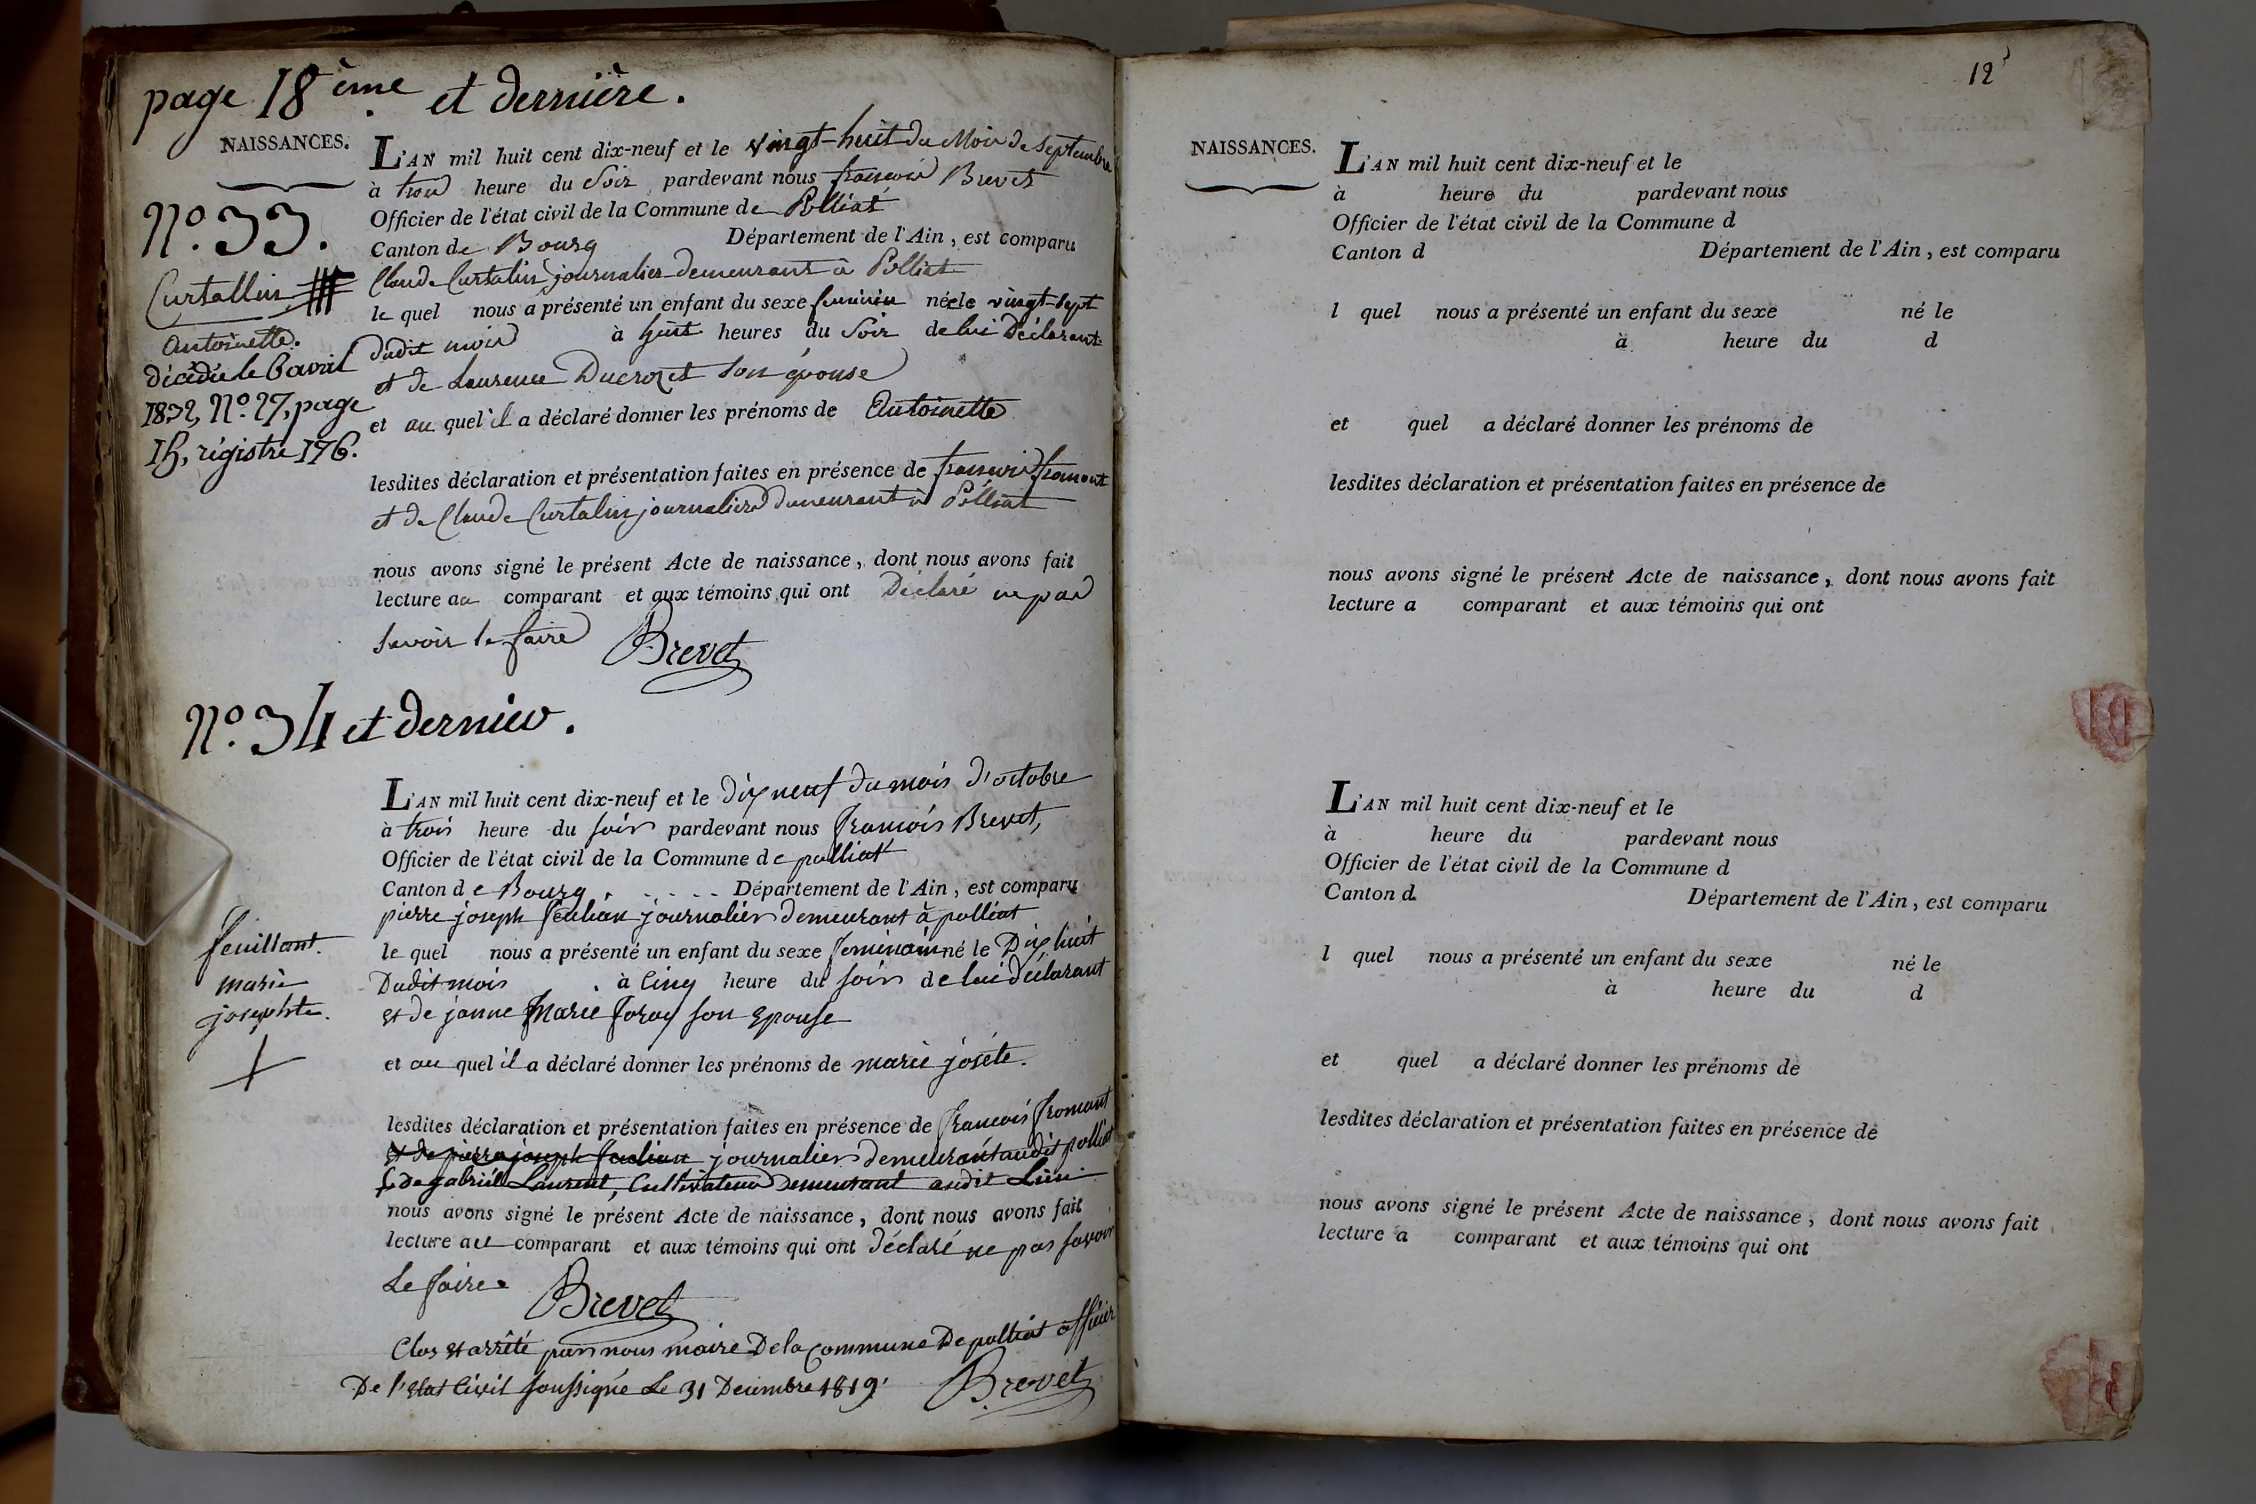 page 18ème et dernière.
NAISSANCES.
L'AN mil huit cent dix-neuf et le vingt-huit du Mois de Septembre
à trois heure du Soir pardevant nous françois Brevet
Officier de l'état civil de la Commune de Polliat
Canton de Bourg Département de l'Ain, est comparu
Claude Curtalin journalier demeurant à Polliat
le quel nous a présenté un enfant du sexe feminin né le vingt-sept
dudit mois à huit heures du Soir de lui Déclarant
et de Laurence Ducrozet son épouse
et au quel il a déclaré donner les prénoms de Antoinette
lesdites déclaration et présentation faites en présence de françois fromont
et de Claude Curtalin journaliers demeurant à Polliat
nous avons signé le présent Acte de naissance, dont nous avons fait
lecture au comparant et aux témoins qui ont Déclaré ne pas
Savoir le faire Brevet
No. 33.
Curtallin
Antoinette.
décédée le 6 avril
1832, No. 27, page
15, régistre 176.
No. 34 et dernier.
L'AN mil huit cent dix-neuf et le dix neuf du mois d'octobre
à trois heure du soir pardevant nous françois Brevet,
Officier de l'état civil de la Commune de polliat
Canton de Bourg . . . . . Département de l'Ain, est comparu
pierre joseph journalier demeurant à polliat
le quel nous a présenté un enfant du sexe feminain né le Dix huit
Dudit mois à Cinq heure du soir de lui Déclarant
et de janne Marie foray son Epouse
et au quel il a déclaré donner les prénoms de marie joséte.
lesdites déclaration et présentation faites en présence de françois fromont
et de pierre joseph journalier demeurant audit polliat
de gabriel Laurent, Cultivateur Demeurant audit Lieu
nous avons signé le présent Acte de naissance, dont nous avons fait
lecture au comparant et aux témoins qui ont déclaré ne pas savoir
Le faire. Brevet
feuillant.
marie
josephte.
Clos et arrêté par nous maire De la Commune De polliat officier
De l'Etat Civil soussigné Le 31 Decembre 1819. Brevet
12
NAISSANCES.
L'AN mil huit cent dix-neuf et le
à heure du pardevant nous
Officier de l'état civil de la Commune d
Canton d Département de l'Ain, est comparu
l quel nous a présenté un enfant du sexe né le
à heure du d
et quel a déclaré donner les prénoms de
lesdites déclaration et présentation faites en présence de
nous avons signé le présent Acte de naissance, dont nous avons fait
lecture a comparant et aux témoins qui ont
L'AN mil huit cent dix-neuf et le
à heure du pardevant nous
Officier de l'état civil de la Commune d
Canton d Département de l'Ain, est comparu
l quel nous a présenté un enfant du sexe né le
à heure du d
et quel a déclaré donner les prénoms de
lesdites déclaration et présentation faites en présence de
nous avons signé le présent Acte de naissance, dont nous avons fait
lecture a comparant et aux témoins qui ont